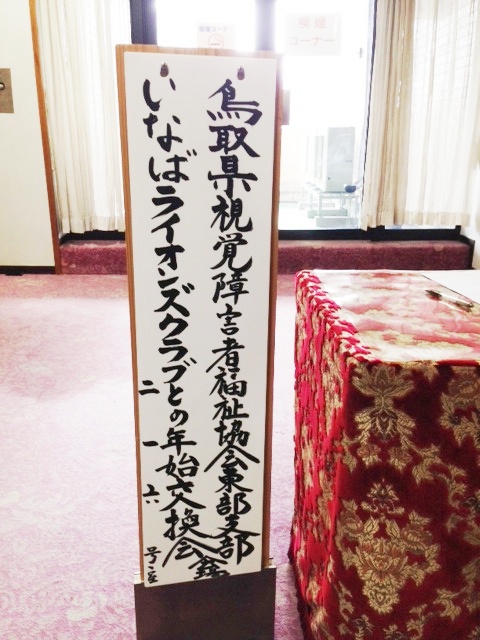 喫煙
コーナー
鳥取県視覚障害者福祉協会東部支部
いなばライオンズクラブとの年始交換会
二一六号室